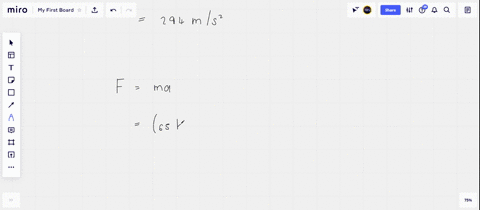 miro My First Board Share
= 294 m/s²
F = ma
= (65 k
75%